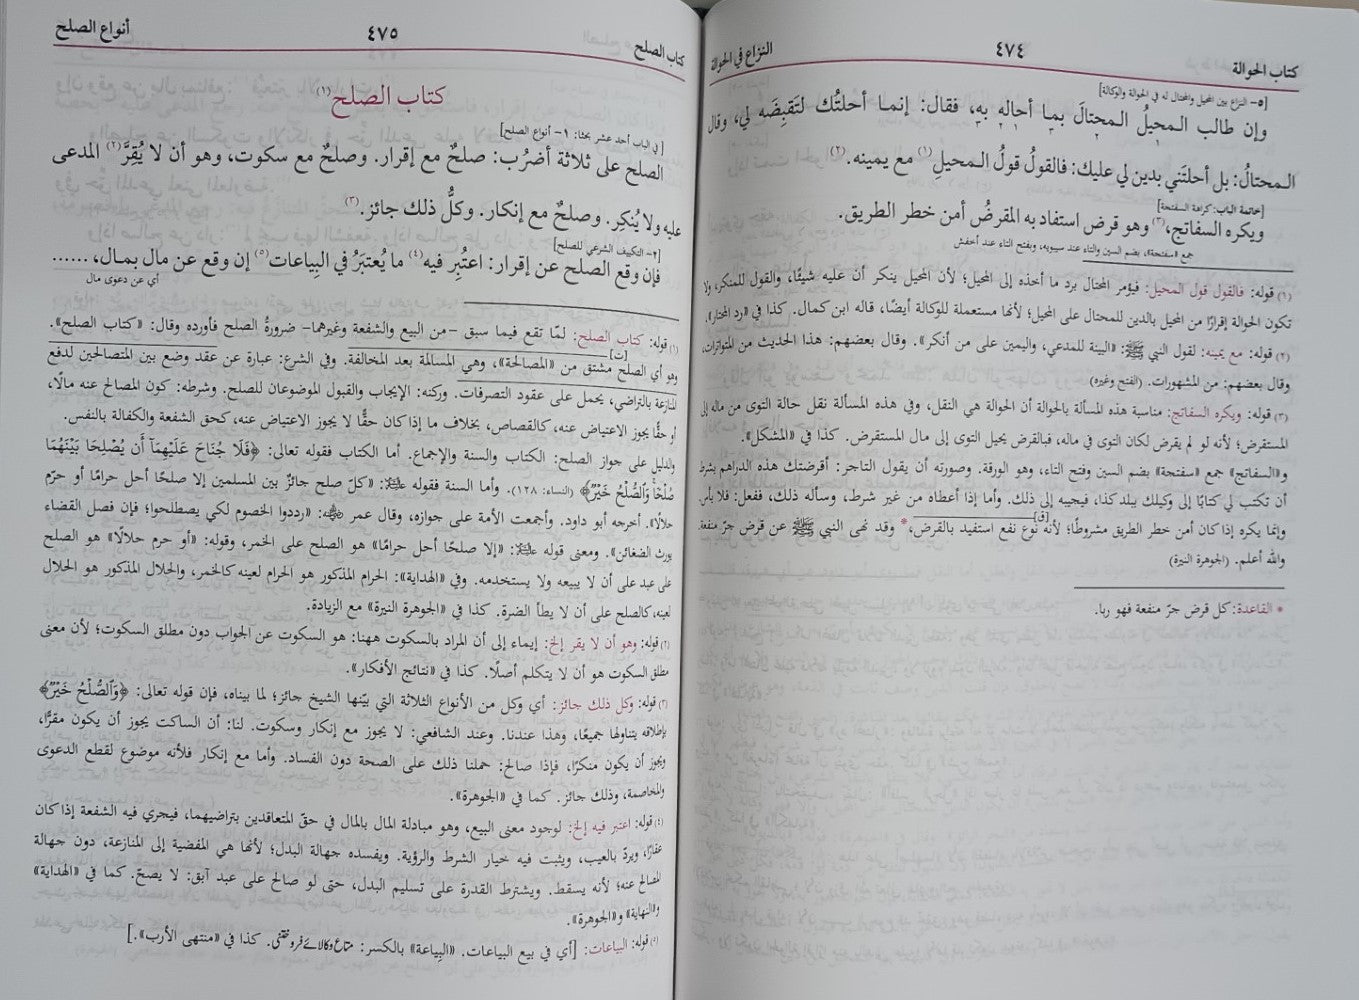 كتاب الحوالة
٤٧٤
النزاع في الحوالة
[٥- النزاع بين المحيل والمحتال له في الحوالة والوكالة]
وإن طالب المحيلُ المحتالَ بما أحاله به، فقال: إنما أحلتُك لتَقبِضَه لي، وقال
المحتالُ: بل أحلتَني بدين لي عليك: فالقولُ قولُ المحيلِ(١) مع يمينه.(٢)
[خاتمة الباب: كراهة السفتجة]
ويكره السفاتج،(٣) وهو قرض استفاد به المقرضُ أمن خطر الطريق.
جمع «سفتجة»، بضم السين والتاء عند سيبويه، وبفتح التاء عند أخفش
(١) قوله: فالقول قول المحيل: فيؤمر المحتال برد ما أخذه إلى المحيل؛ لأن المحيل ينكر أن عليه شيئًا، والقول للمنكر، ولا
تكون الحوالة إقرارًا من المحيل بالدين للمحتال على المحيل؛ لأنها مستعملة للوكالة أيضًا، قاله ابن كمال. كذا في «رد المحتار».
(٢) قوله: مع يمينه: لقول النبي ﷺ: «البينة للمدعي، واليمين على من أنكر». وقال بعضهم: هذا الحديث من المتواترات،
وقال بعضهم: من المشهورات. (الفتح وغيره)
(٣) قوله: ويكره السفاتج: مناسبة هذه المسألة بالحوالة أن الحوالة هي النقل، وفي هذه المسألة نقل حالة التوى من ماله إلى
المستقرض؛ لأنه لو لم يقرض لكان التوى في ماله، فبالقرض يحيل التوى إلى مال المستقرض. كذا في «المشكل».
و«السفاتج» جمع «سفتجة» بضم السين وفتح التاء، وهو الورقة. وصورته أن يقول التاجر: أقرضتك هذه الدراهم بشرط
أن تكتب لي كتابًا إلى وكيلك ببلد كذا، فيجيبه إلى ذلك. وأما إذا أعطاه من غير شرط، وسأله ذلك، ففعل: فلا بأس.
وإنما يكره إذا كان أمن خطر الطريق مشروطًا؛ لأنه [ق] نوع نفع استفيد بالقرض،* وقد نهى النبي ﷺ عن قرض جرّ منفعة.
والله أعلم. (الجوهرة النيرة)
* القاعدة: كل قرض جرّ منفعة فهو ربا.
كتاب الصلح
٤٧٥
أنواع الصلح
كتاب الصلح(١)
[في الباب أحد عشر بحثا: ١- أنواع الصلح]
الصلح على ثلاثة أضرُب: صلحٌ مع إقرار. وصلحٌ مع سكوت، وهو أن لا يُقِرَّ(٢) المدعى
عليه ولا يُنكِر. وصلحٌ مع إنكار. وكلُّ ذلك جائز.(٣)
[٢- التكييف الشرعي للصلح]
فإن وقع الصلح عن إقرار: اعتُبِر فيه(٤) ما يُعتبَرُ في البِياعات(٥) إن وقع عن مال بمال، ......
أي عن دعوى مال
(١) قوله: كتاب الصلح: لمّا تقع فيما سبق –من البيع والشفعة وغيرهما– ضرورةُ الصلح فأورده وقال: «كتاب الصلح».
وهو أي الصلح مشتق من [ت] «المصالحة»، وهي المسالمة بعد المخالفة. وفي الشرع: عبارة عن عقد وضع بين المتصالحين لدفع
المنازعة بالتراضي، يحمل على عقود التصرفات. وركنه: الإيجاب والقبول الموضوعان للصلح. وشرطه: كون المصالح عنه مالًا،
أو حقًّا يجوز الاعتياض عنه، كالقصاص، بخلاف ما إذا كان حقًّا لا يجوز الاعتياض عنه، كحق الشفعة والكفالة بالنفس.
والدليل على جواز الصلح: الكتاب والسنة والإجماع. أما الكتاب فقوله تعالى: ﴿فَلَا جُنَاحَ عَلَيْهِمَآ أَن يُصْلِحَا بَيْنَهُمَا
صُلْحًا وَٱلصُّلْحُ خَيْرٌ﴾ (النساء: ١٢٨). وأما السنة فقوله ﷺ: «كلّ صلح جائزٌ بين المسلمين إلا صلحًا أحل حرامًا أو حرّم
حلالًا». أخرجه أبو داود. وأجمعت الأمة على جوازه، وقال عمر ﷜: «ردووا الخصوم لكي يصطلحوا؛ فإن فصل القضاء
يورث الضغائن». ومعنى قوله ﷺ: «إلا صلحًا أحل حرامًا» هو الصلح على الخمر، وقوله: «أو حرم حلالًا» هو الصلح
على عبد على أن لا يبيعه ولا يستخدمه. وفي «الهداية»: الحرام المذكور هو الحرام لعينه كالخمر، والحلال المذكور هو الحلال
لعينه، كالصلح على أن لا يطأ الضرة. كذا في «الجوهرة النيرة» مع الزيادة.
(٢) قوله: وهو أن لا يقر إلخ: إيماء إلى أن المراد بالسكوت ههنا: هو السكوت عن الجواب دون مطلق السكوت؛ لأن معنى
مطلق السكوت هو أن لا يتكلم أصلًا. كذا في «نتائج الأفكار».
(٣) قوله: وكل ذلك جائز: أي وكل من الأنواع الثلاثة التي بيّنها الشيخ جائز؛ لما بيناه، فإن قوله تعالى: ﴿وَٱلصُّلْحُ خَيْرٌ﴾
بإطلاقه يتناولها جميعًا، وهذا عندنا. وعند الشافعي: لا يجوز مع إنكار وسكوت. لنا: أن الساكت يجوز أن يكون مقرًّا،
ويجوز أن يكون منكرًا، فإذا صالح: حملنا ذلك على الصحة دون الفساد. وأما مع إنكار فلأنه موضوع لقطع الدعوى
والمخاصمة، وذلك جائز. كما في «الجوهرة».
(٤) قوله: اعتبر فيه إلخ: لوجود معنى البيع، وهو مبادلة المال بالمال في حقّ المتعاقدين بتراضيهما، فيجري فيه الشفعة إذا كان
عقارًا، ويردّ بالعيب، ويثبت فيه خيار الشرط والرؤية. ويفسده جهالة البدل؛ لأنها هي المفضية إلى المنازعة، دون جهالة
المصالح عنه؛ لأنه يسقط. ويشترط القدرة على تسليم البدل، حتى لو صالح على عبد آبق: لا يصحّ. كما في «الهداية»
و«النهاية» و«الجوهرة».
(٥) قوله: البياعات: [أي في بيع البياعات. «البِياعة» بالكسر: متاع وكالائے فروختنی. كذا في «منتهى الأرب».]